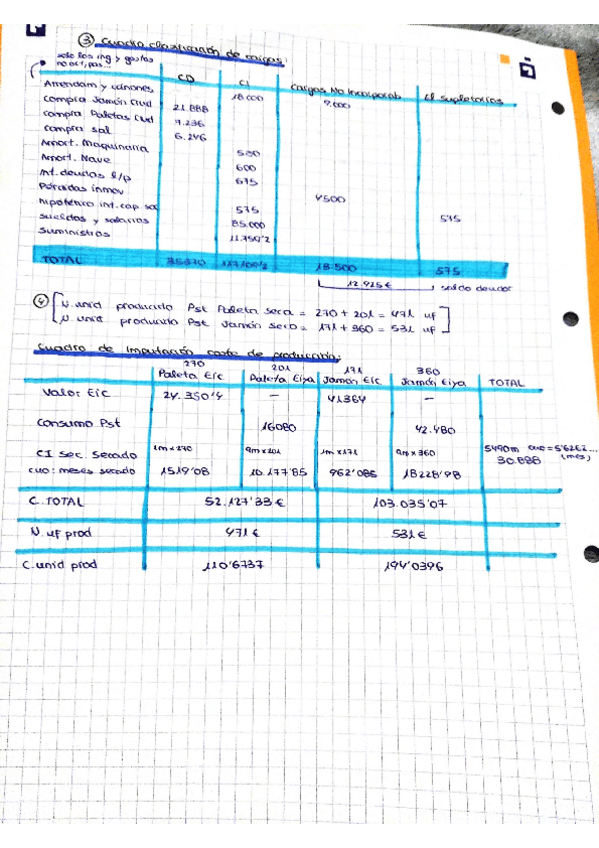 ③ Cuadro clasificación de cargas:
solo los ing y gastos
no act, pas...
CD CI Cargas No Incorporab CI Supletorias
Arrendam y cánones 18.000 7.000
compra Jamón Crud 21.888
compra Paletas Crud 7.236
compra sal 6.246
Amort. Maquinaria 500
Amort. Nave 600
Int. deudas l/p 675
Pérdidas inmov 4500
hipotético int. cap 575
sueldos y salarios 85.000 575
Suministros 11.759'2
TOTAL 35370 117109'2 18.500 575
12.925€ → saldo deudor
④ N. unid producida Pst Paleta seca = 270 + 201 = 471 uf
N unid producida Pst Jamón seco = 171 + 360 = 531 uf
Cuadro de imputación coste de producción:
270 201 171 360
Paleta Eic Paleta Eiya Jamón Eic Jamón Eiya TOTAL
Valor Eic 24.350'4 - 41364 -
Consumo Pst 16080 42.480
CI Sec. Secado 1m x 270 9m x 201 1m x 171 9m x 360 5490m cuo = 5'6262...
cuo: meses secado 1519'08 10.177'85 962'085 18228'98 30.888 (mes)
C. TOTAL 52.127'33 € 103.035'07
N. uf prod 471 € 531 €
C. unid prod 110'6737 194'0396